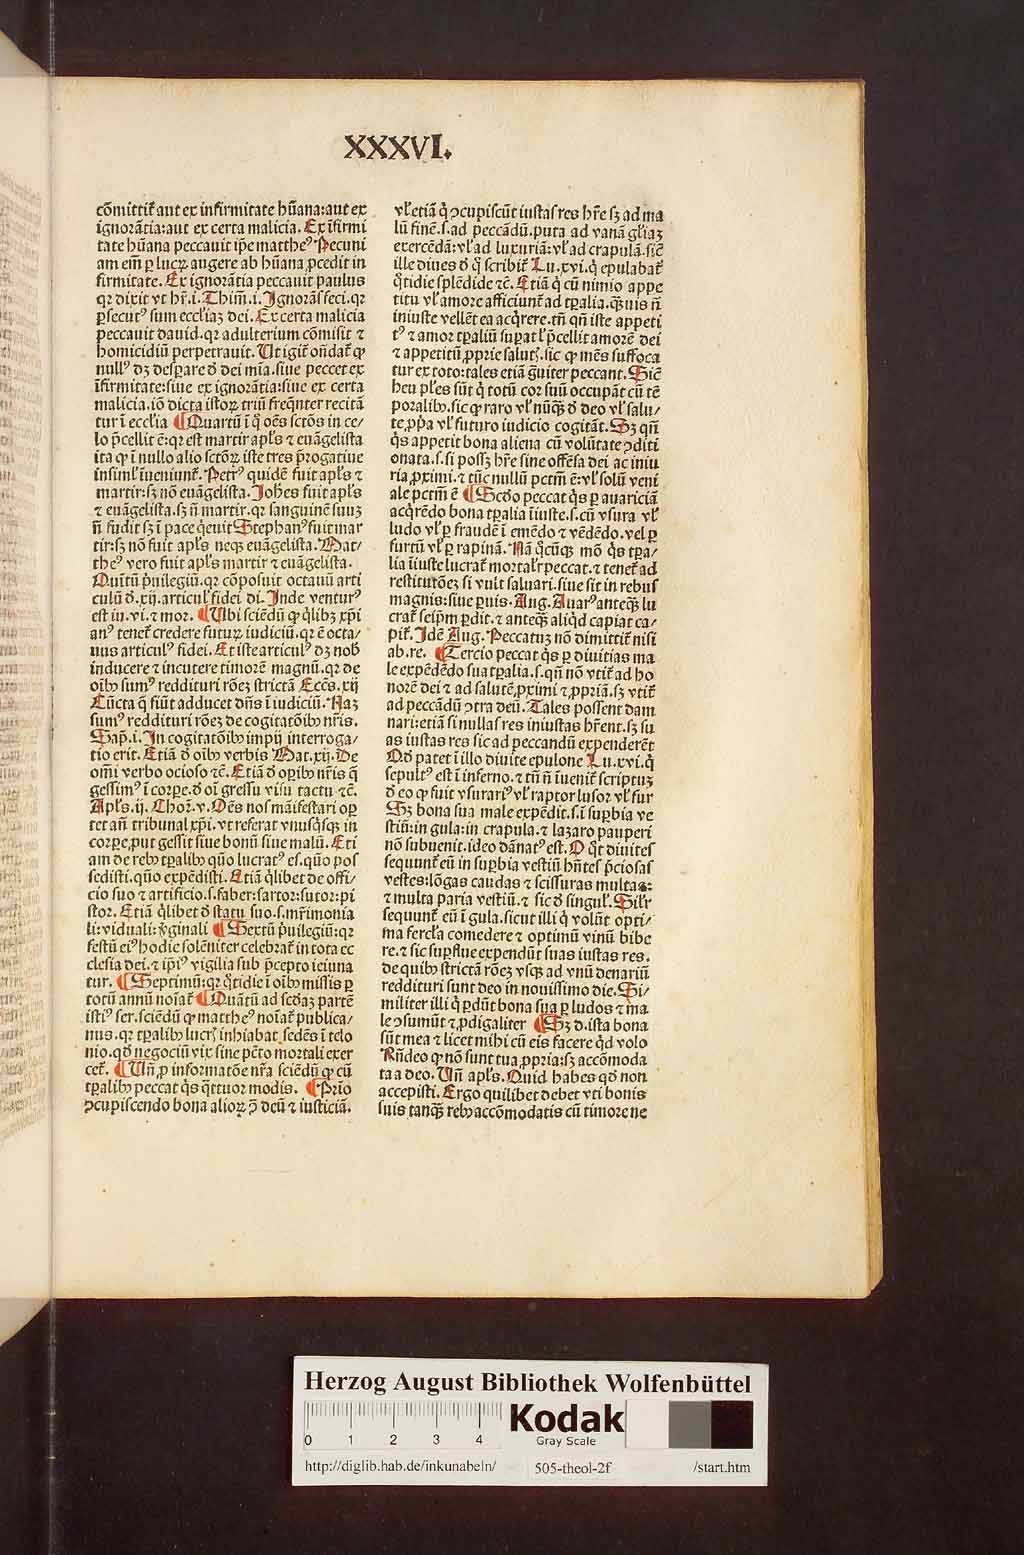 XXXVI.
cōmittit̄ aut ex infirmitate hūana: aut ex
ignorātia: aut ex certa malicia. Ex īfirmi
tate hūana peccauit ip̄e matthe⁹ Pecuni
am em̄ ꝑ lucꝝ augere ab hūana ꝓcedit in
firmitate. Ex ignorātia peccauit paulus
qꝛ dixit vt hr̄.i. Thim̄.i. Ignorās feci. qꝛ
ꝑsecut⁹ sum eccl̄iaꝫ dei. Ex certa malicia
peccauit dauid. qꝛ adulterium cōmisit ⁊
homicidiū perpetrauit. Ut igit̄ on̄dat̄ ꝙ
null⁹ dꝫ desꝑare đ dei mīa. siue peccet ex
īfirmitate: siue ex ignorātia: siue ex certa
malicia. iō dicta istoꝝ triū freq̄nter recitā
tur ī eccl̄ia ¶ Quartū ī q̊ oēs sctōs in ce-
lo p̄cellit ē: qꝛ est martir apl̄s ⁊ euāgelista
ita ꝙ ī nullo alio sctōꝝ iste tres p̄rogatiue
insimĺ īueniunt̄. Petr⁹ quidē fuit apl̄s ⁊
martir: sꝫ nō euāgelista. Joh̄es fuit apl̄s
⁊ euāgelista. sꝫ n̄ martir. qꝛ sanguinē suuꝫ
n̄ fudit sꝫ ī pace q̄euit Stephan⁹ fuit mar
tir: sꝫ nō fuit apl̄s neqꝫ euāgelista. Mat-
the⁹ vero fuit apl̄s martir ⁊ euāgelista.
Quītū p̄uilegiū. qꝛ cōposuit octauū arti
culū đ.xij. articuĺ fidei đi. Inde ventur⁹
est iu. vi. ⁊ mor. ¶ Ubi sciēdū ꝙ q̄libꝫ xp̄i
an⁹ tenet̄ credere futuꝝ iudiciū. qꝛ ē octa-
uus articul⁹ fidei. Et iste articul⁹ dꝫ nob̄
inducere ⁊ incutere timorē magnū. qꝛ de
oībꝫ sum⁹ reddituri rōeꝫ strictā Eccēs. xij
Cūcta q̄ fiūt adducet dn̄s ī iudiciū. Naꝫ
sum⁹ reddituri rōeꝫ de cogitatōibꝫ nr̄is.
Sap̄.i. In cogitatōibꝫ impij interroga-
tio erit. Etiā đ oībꝫ verbis Mat.xij. De
om̄i verbo ocioso ⁊c̄. Etiā đ oꝑibꝫ nr̄is q̄
gessim⁹ ī corꝑe. đ oī gressu visu tactu ⁊c̄.
Apl̄s.ij. Choꝝ.v. Oēs nos māifestari oꝑ
tet an̄ tribunal xp̄i. vt referat vnusq̄sqꝫ in
corꝑe, put gessit siue bonū siue malū. Eti
am de rebꝫ tꝑalibꝫ quō lucrat⁹ es. quō pos
sedisti. quō expēdisti. Etiā q̄libet de offi-
cio suo ⁊ artificio. s. faber: sartor: sutor: pi
stor. Etiā q̄libet đ statu suo. s. mr̄imonia
li: viduali: v̄ginali ¶ Sextū p̄uilegiū: qꝛ
festū ei⁹ hodie solēniter celebrat̄ in tota ec
clesia dei. ⁊ ip̄i⁹ vigilia sub p̄cepto ieiuna
tur. ¶ Septimū: qꝛ q̄tidie ī oībꝫ missis ꝑ
totū annū noīat̄ ¶ Quātū ad scđaꝫ partē
isti⁹ ser. sciēdū ꝙ matthe⁹ noīat̄ publica-
nus. qꝛ tꝑalibꝫ lucꝭ inhiabat sedēs ī telo
nio. qđ negociū vix sine pctō mortali exer
cet̄. ¶ Un̄ ꝓ informatōe nr̄a sciēdū ꝙ cū
tꝑalibꝫ peccat q̄s q̄ttuor modis. ¶ Prīo
ↄcupiscendo bona alioꝝ ꝯ̄ deū ⁊ iusticiā.
vl̄ etiā q̄ ↄcupiscūt iustas res hr̄e sꝫ ad ma
lū finē. s. ad peccādū. puta ad vanā gl̄iaꝫ
exercēdā: vl̄ ad luxuriā: vl̄ ad crapulā. sic̄
ille diues đ q̊ scribit̄ Lu.xvi. q̄ epulabat̄
q̄tidie splēdide ⁊c̄. Etiā q̄ cū nimio appe
titu vl̄ amore afficiunt̄ ad tꝑalia. q̄uis n̄
iniuste vellēt ea acq̄rere. tn̄ qn̄ iste appeti
t⁹ ⁊ amor tꝑaliū suꝑat l̄ p̄cellit amorē dei
⁊ appetitū ꝓprie salutꝭ. sic ꝙ mēs suffoca
tur ex toto: tales etiā g̊uiter peccant. Sic̄
heu pl̄es sūt q̄ totū cor suū occupāt cū tē
poralibꝫ. sic ꝙ raro vl̄ nūq̄ đ deo vl̄ salu-
te, ꝓp̄a vl̄ futuro iudicio cogitāt. Sꝫ qn̄
q̄s appetit bona aliena cū volūtate ↄditi
onata. s. si possꝫ hr̄e sine offēsa dei ac iniu
ria ꝓximi. ⁊ tūc nullū pctm̄ ē: vl̄ solū veni
ale pctm̄ ē ¶ Scđo peccat q̄s ꝑ auariciā
acq̄rēdo bona tꝑalia īiuste. s. cū vsura vl̄
ludo vl̄ ꝑ fraudē ī emēdo ⁊ vēdēdo. vel ꝑ
furtū vl̄ ꝑ rapinā. Nā q̄cūqꝫ mō q̄s tꝑa-
lia īiuste lucrat̄ mortal̄r peccat. ⁊ tenet̄ ad
restitutōeꝫ si vult saluari. siue sit in rebus
magnis: siue ꝑuis. Aug. Auar⁹ anteqꝫ lu
crat̄ seip̄m ꝑdit. ⁊ anteqꝫ aliq̄d capiat ca-
pit̄. Idē Aug. Peccatuꝫ nō dimittit̄ nisi
ab. re. ¶ Tercio peccat q̄s ꝑ diuitias ma
le expēdēdo sua tꝑalia. s. qn̄ nō vtit̄ ad ho
norē dei ⁊ ad salutē, ꝓximi ⁊ ꝓpriā. sꝫ vtit̄
ad peccādū ↄtra deū. Tales possent dam
nari: etiā si nullas res iniustas hr̄ent. sꝫ su
as iustas res sic ad peccandū expenderēt
Qđ patet ī illo diuite epulone Lu.xvi. q̄
sepult⁹ est ī inferno. ⁊ tn̄ n̄ īuenit̄ scriptuꝫ
đ eo ꝙ fuit vsurari⁹ vl̄ raptor lusor vl̄ fur
Sꝫ bona sua male expēdit. s. ī suꝑbia ve
stiū: in gula: in crapula. ⁊ lazaro pauperi
nō subuenit. ideo dānat⁹ est. O q̊t diuites
sequunt̄ eū in suꝑbia vestiū hn̄tes p̄ciosas
vestes: lōgas caudas ⁊ scissuras multas:
⁊ multa paria vestiū. ⁊ sic đ singuĺ. Sil̄r
sequunt̄ eū ī gula. sicut illi q̄ volūt opti-
ma fercl̄a comedere ⁊ optimū vinū bibe
re. ⁊ sic suꝑflue expendūt suas iustas res.
de quibꝫ strictā rōeꝫ vsqꝫ ad vnū denariū
reddituri sunt deo in nouissimo die. Si-
militer illi q̄ ꝑdūt bona sua ꝑ ludos ⁊ ma
le ↄsumūt ⁊ ꝓdigaliter ¶ Sꝫ đ. ista bona
sūt mea ⁊ licet mihi cū eis facere qđ volo
Rn̄deo ꝙ nō sunt tua ꝓpria: sꝫ accōmoda
ta a deo. Un̄ apl̄s. Quid habes qđ non
accepisti. Ergo quilibet debet vti bonis
suis tanqꝫ rebꝫ accōmodatis cū timore ne
Herzog August Bibliothek Wolfenbüttel
0 1 2 3 4
Kodak
Gray Scale
http://diglib.hab.de/inkunabeln/ 505-theol-2f /start.htm